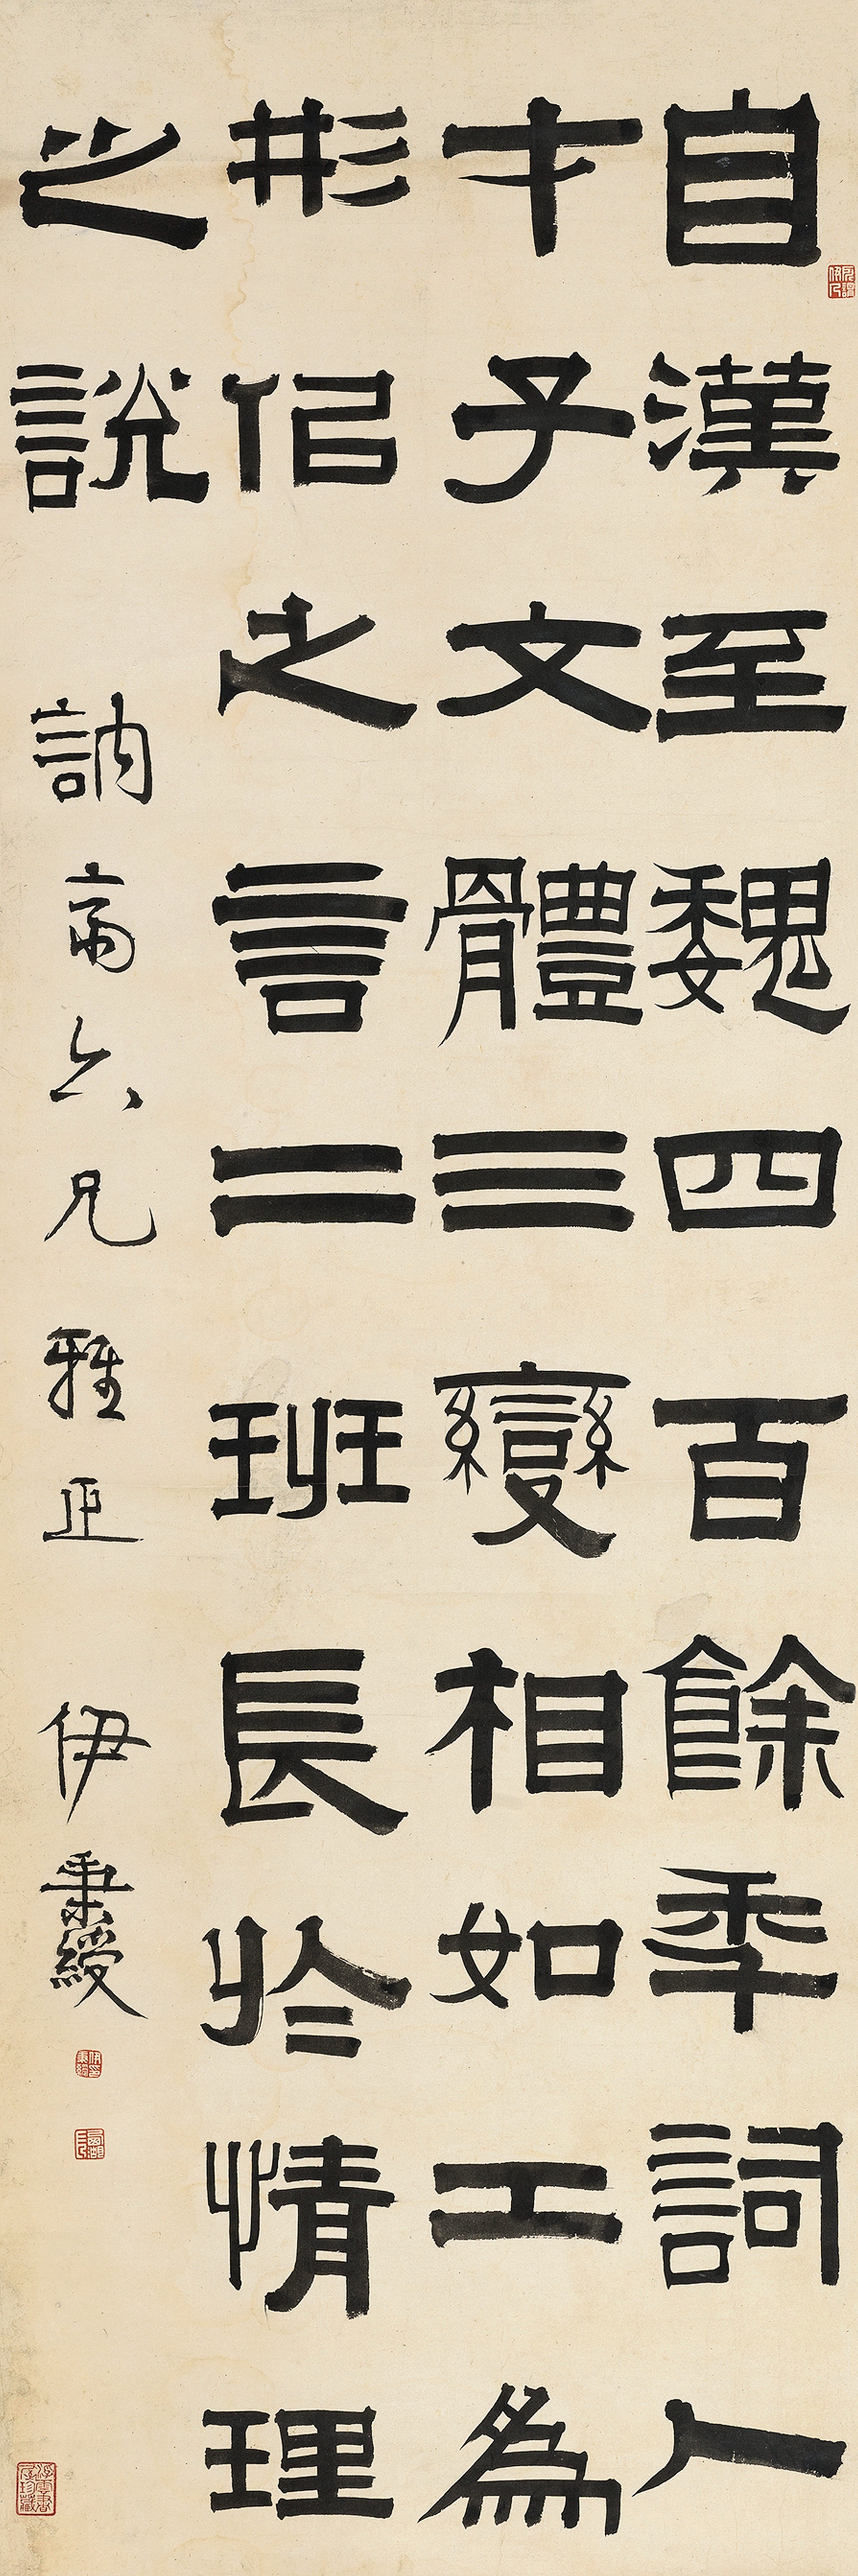 自漢至魏四百餘秊詞人
才子文體三變相如工爲
形佀之言二班長於情理
之說 訥齋六兄雅正 伊秉綬